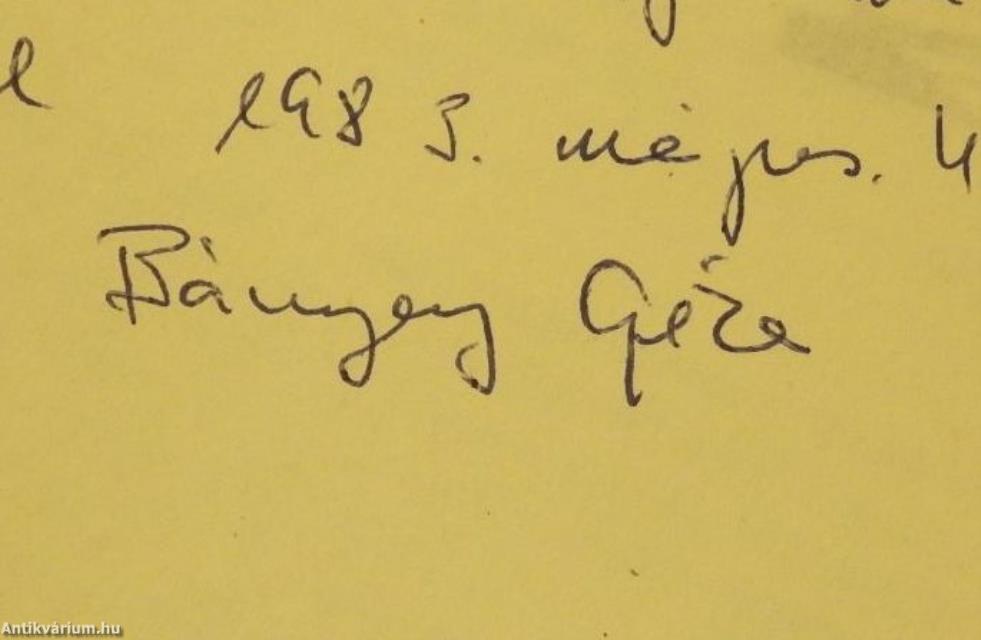 1983. május. 4
Bányay Géza
Antikvárium.hu